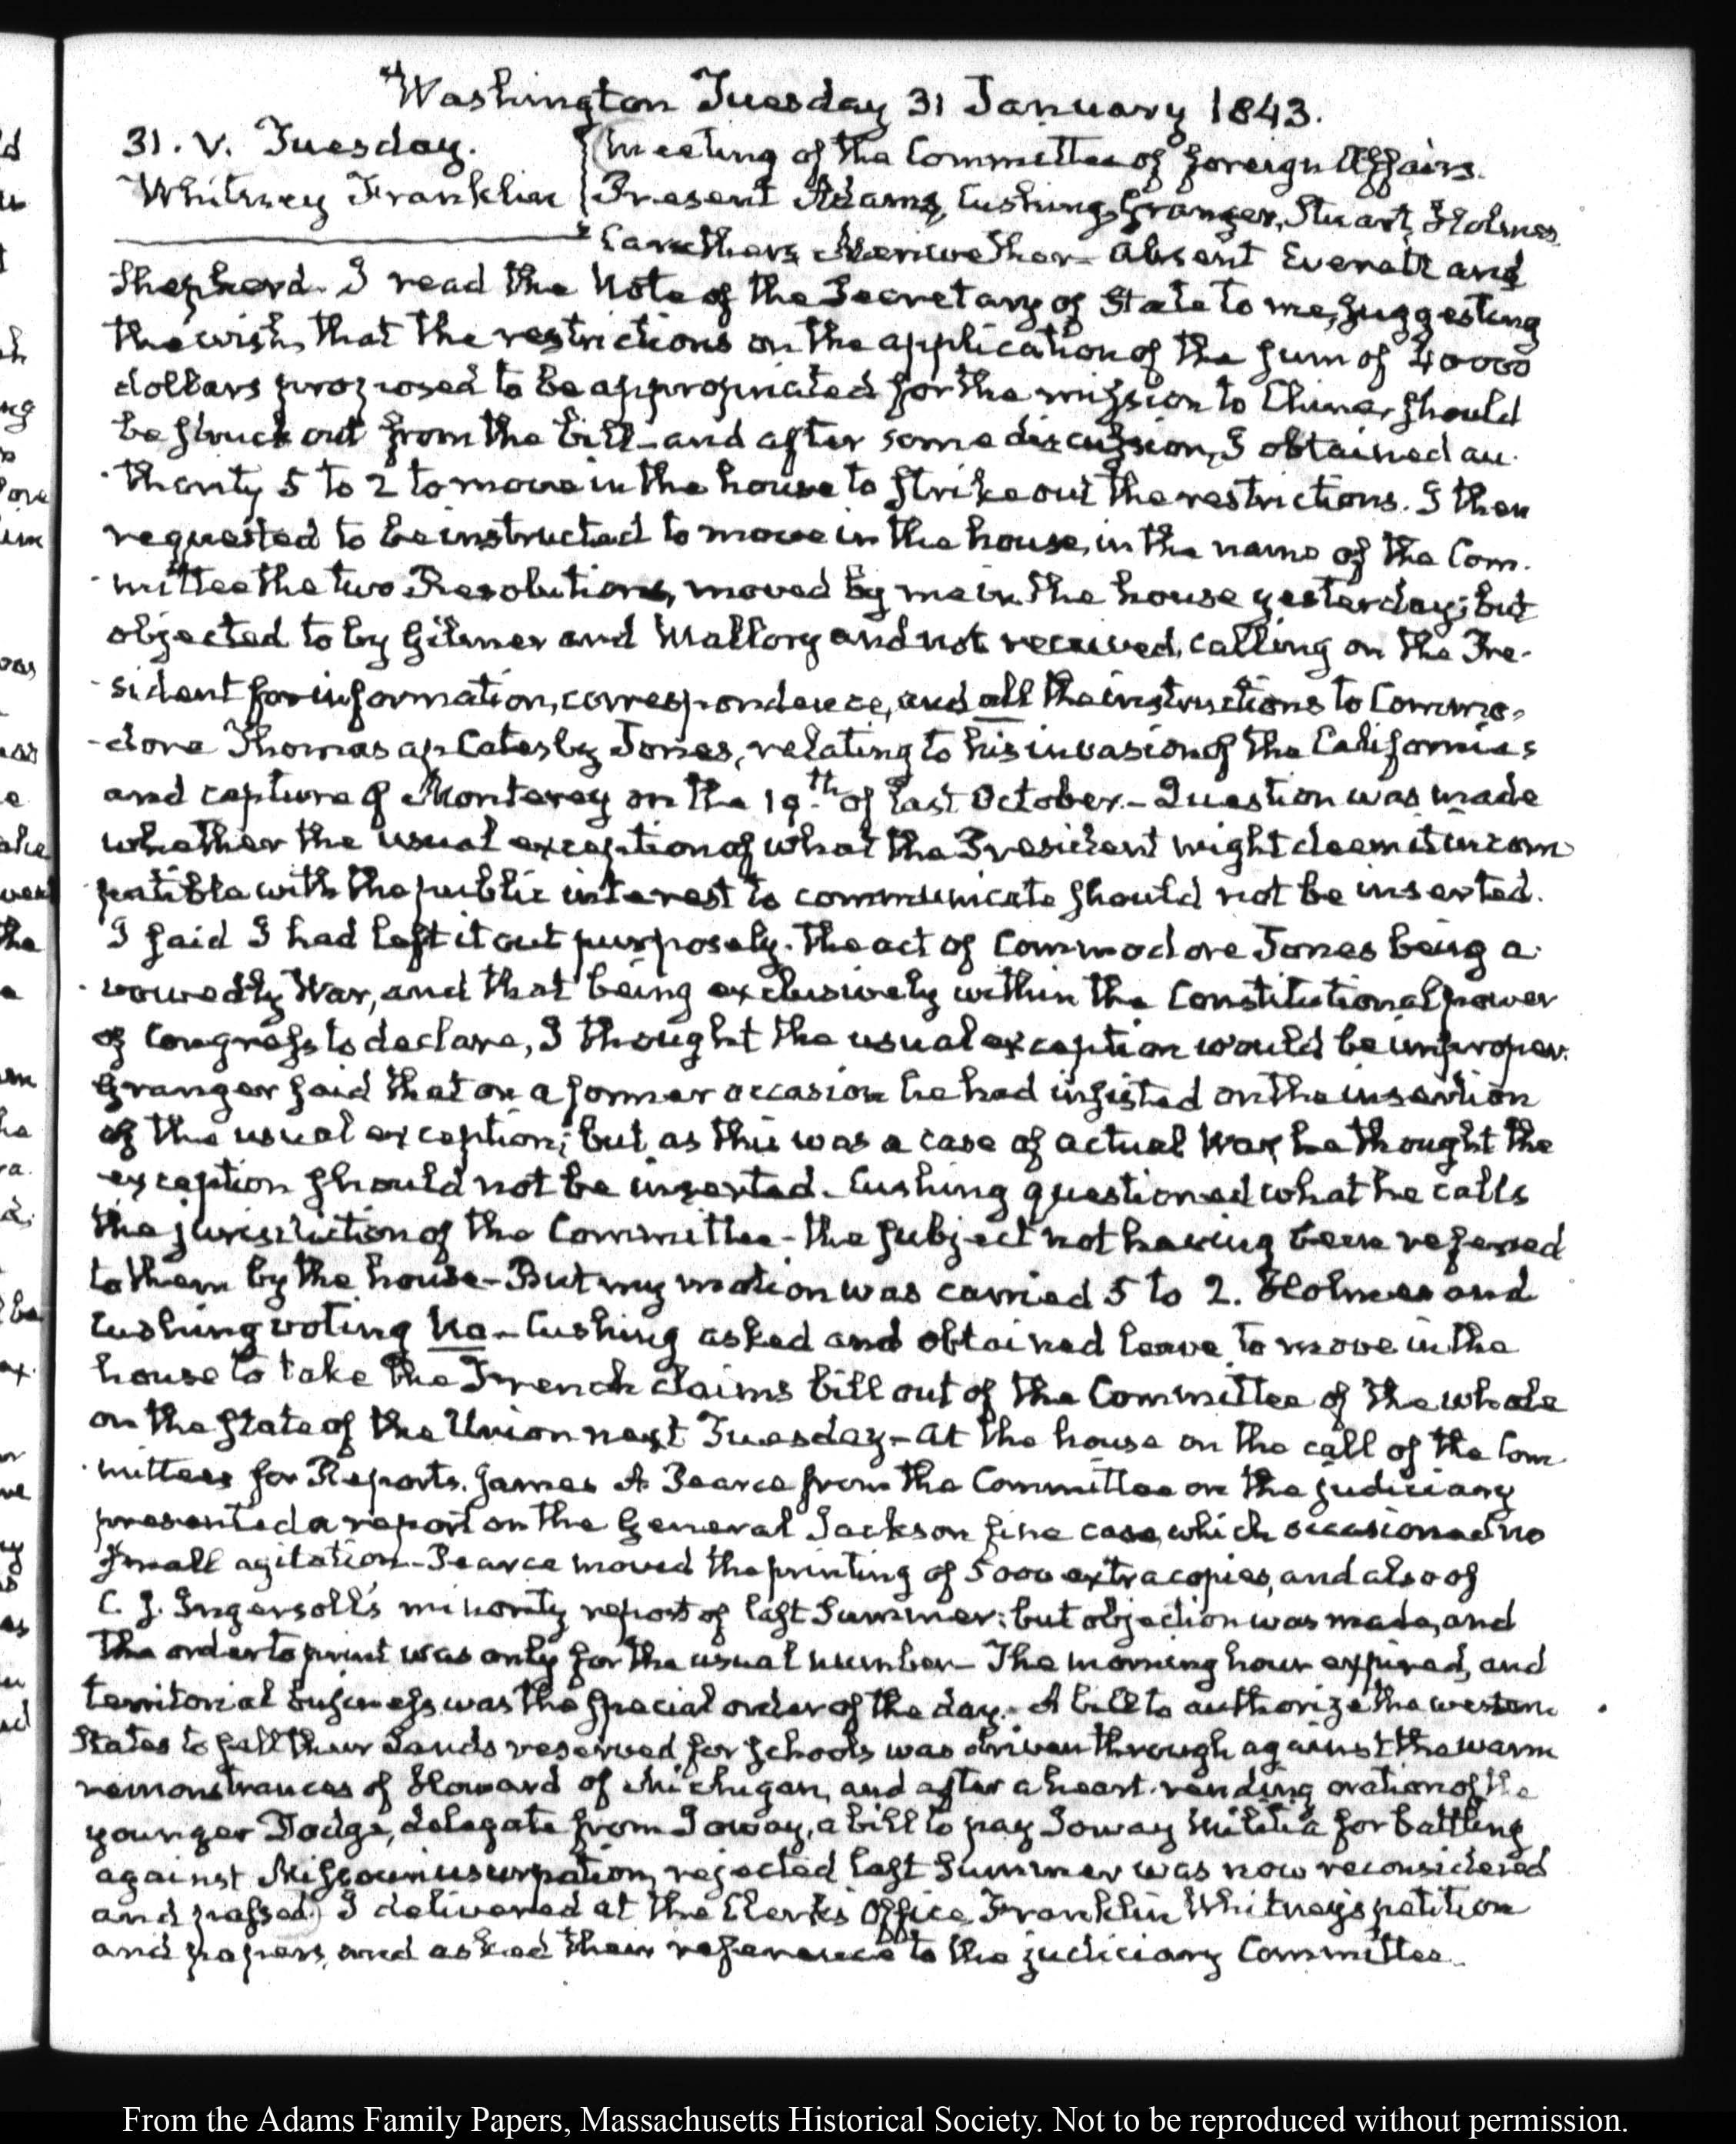 Washington Tuesday 31 January 1843.
31. V. Tuesday.
Whitney Franklin
Meeting of the Committee of foreign Affairs.
Present Adams, Cushing, Granger, Stuart, Holmes
Caruthers Meriwether - absent Everett and
Shepperd. I read the Note of the Secretary of State to me, suggesting
the wish, that the restrictions on the application of the sum of 40000
dollars proposed to be appropriated for the mission to China, should
be struck out from the bill - and after some discussion, I obtained au-
-thority 5 to 2 to move in the house to strike out the restrictions. I then
requested to be instructed to move in the house, in the name of the Com-
-mittee the two Resolutions, moved by me in the house yesterday; but
objected to by Gilmer and Mallory and not received, calling on the Pre-
-sident for information, correspondence, and all the instructions to Commo-
-dore Thomas ap Catesby Jones, relating to his invasion of the Californias
and capture of Monterey on the 19th of last October. - Question was made
whether the usual exception of what the President might deem it incom
patible with the public interest to communicate should not be inserted.
I said I had left it out purposely. The act of Commodore Jones being a-
-vowedly War, and that being exclusively within the Constitutional power
of Congress to declare, I thought the usual exception would be improper.
Granger said that on a former occasion he had insisted on the insertion
of the usual exception; but as this was a case of actual War, he thought the
exception should not be inserted - Cushing questioned what he calls
the jurisdiction of the Committee - the subject not having been referred
to them by the house - But my motion was carried 5 to 2. Holmes and
Cushing voting No - Cushing asked and obtained leave to move in the
house to take the French claims bill out of the Committee of the whole
on the state of the Union next Tuesday - At the house on the call of the Com-
-mittees for Reports. James A Pearce from the Committee on the judiciary
presented a report on the General Jackson fine case, which occasioned no
small agitation - Pearce moved the printing of 5000 extra copies, and also of
C. J. Ingersoll's minority report of last Summer: but objection was made, and
the order to print was only for the usual number - The morning hour expired, and
territorial business was the special order of the day. - A bill to authorize the western
States to sell their Lands reserved for schools was driven through against the warm
remonstrances of Howard of Michigan, and after a heart-rending oration of the
younger Dodge, delegate from Ioway, a bill to pay Ioway Militia for battling
against Missouri usurpation, rejected last Summer was now reconsidered
and passed. I delivered at the Clerk's Office, Franklin Whitney's petition
and papers, and asked their reference to the judiciary Committee.
From the Adams Family Papers, Massachusetts Historical Society. Not to be reproduced without permission.